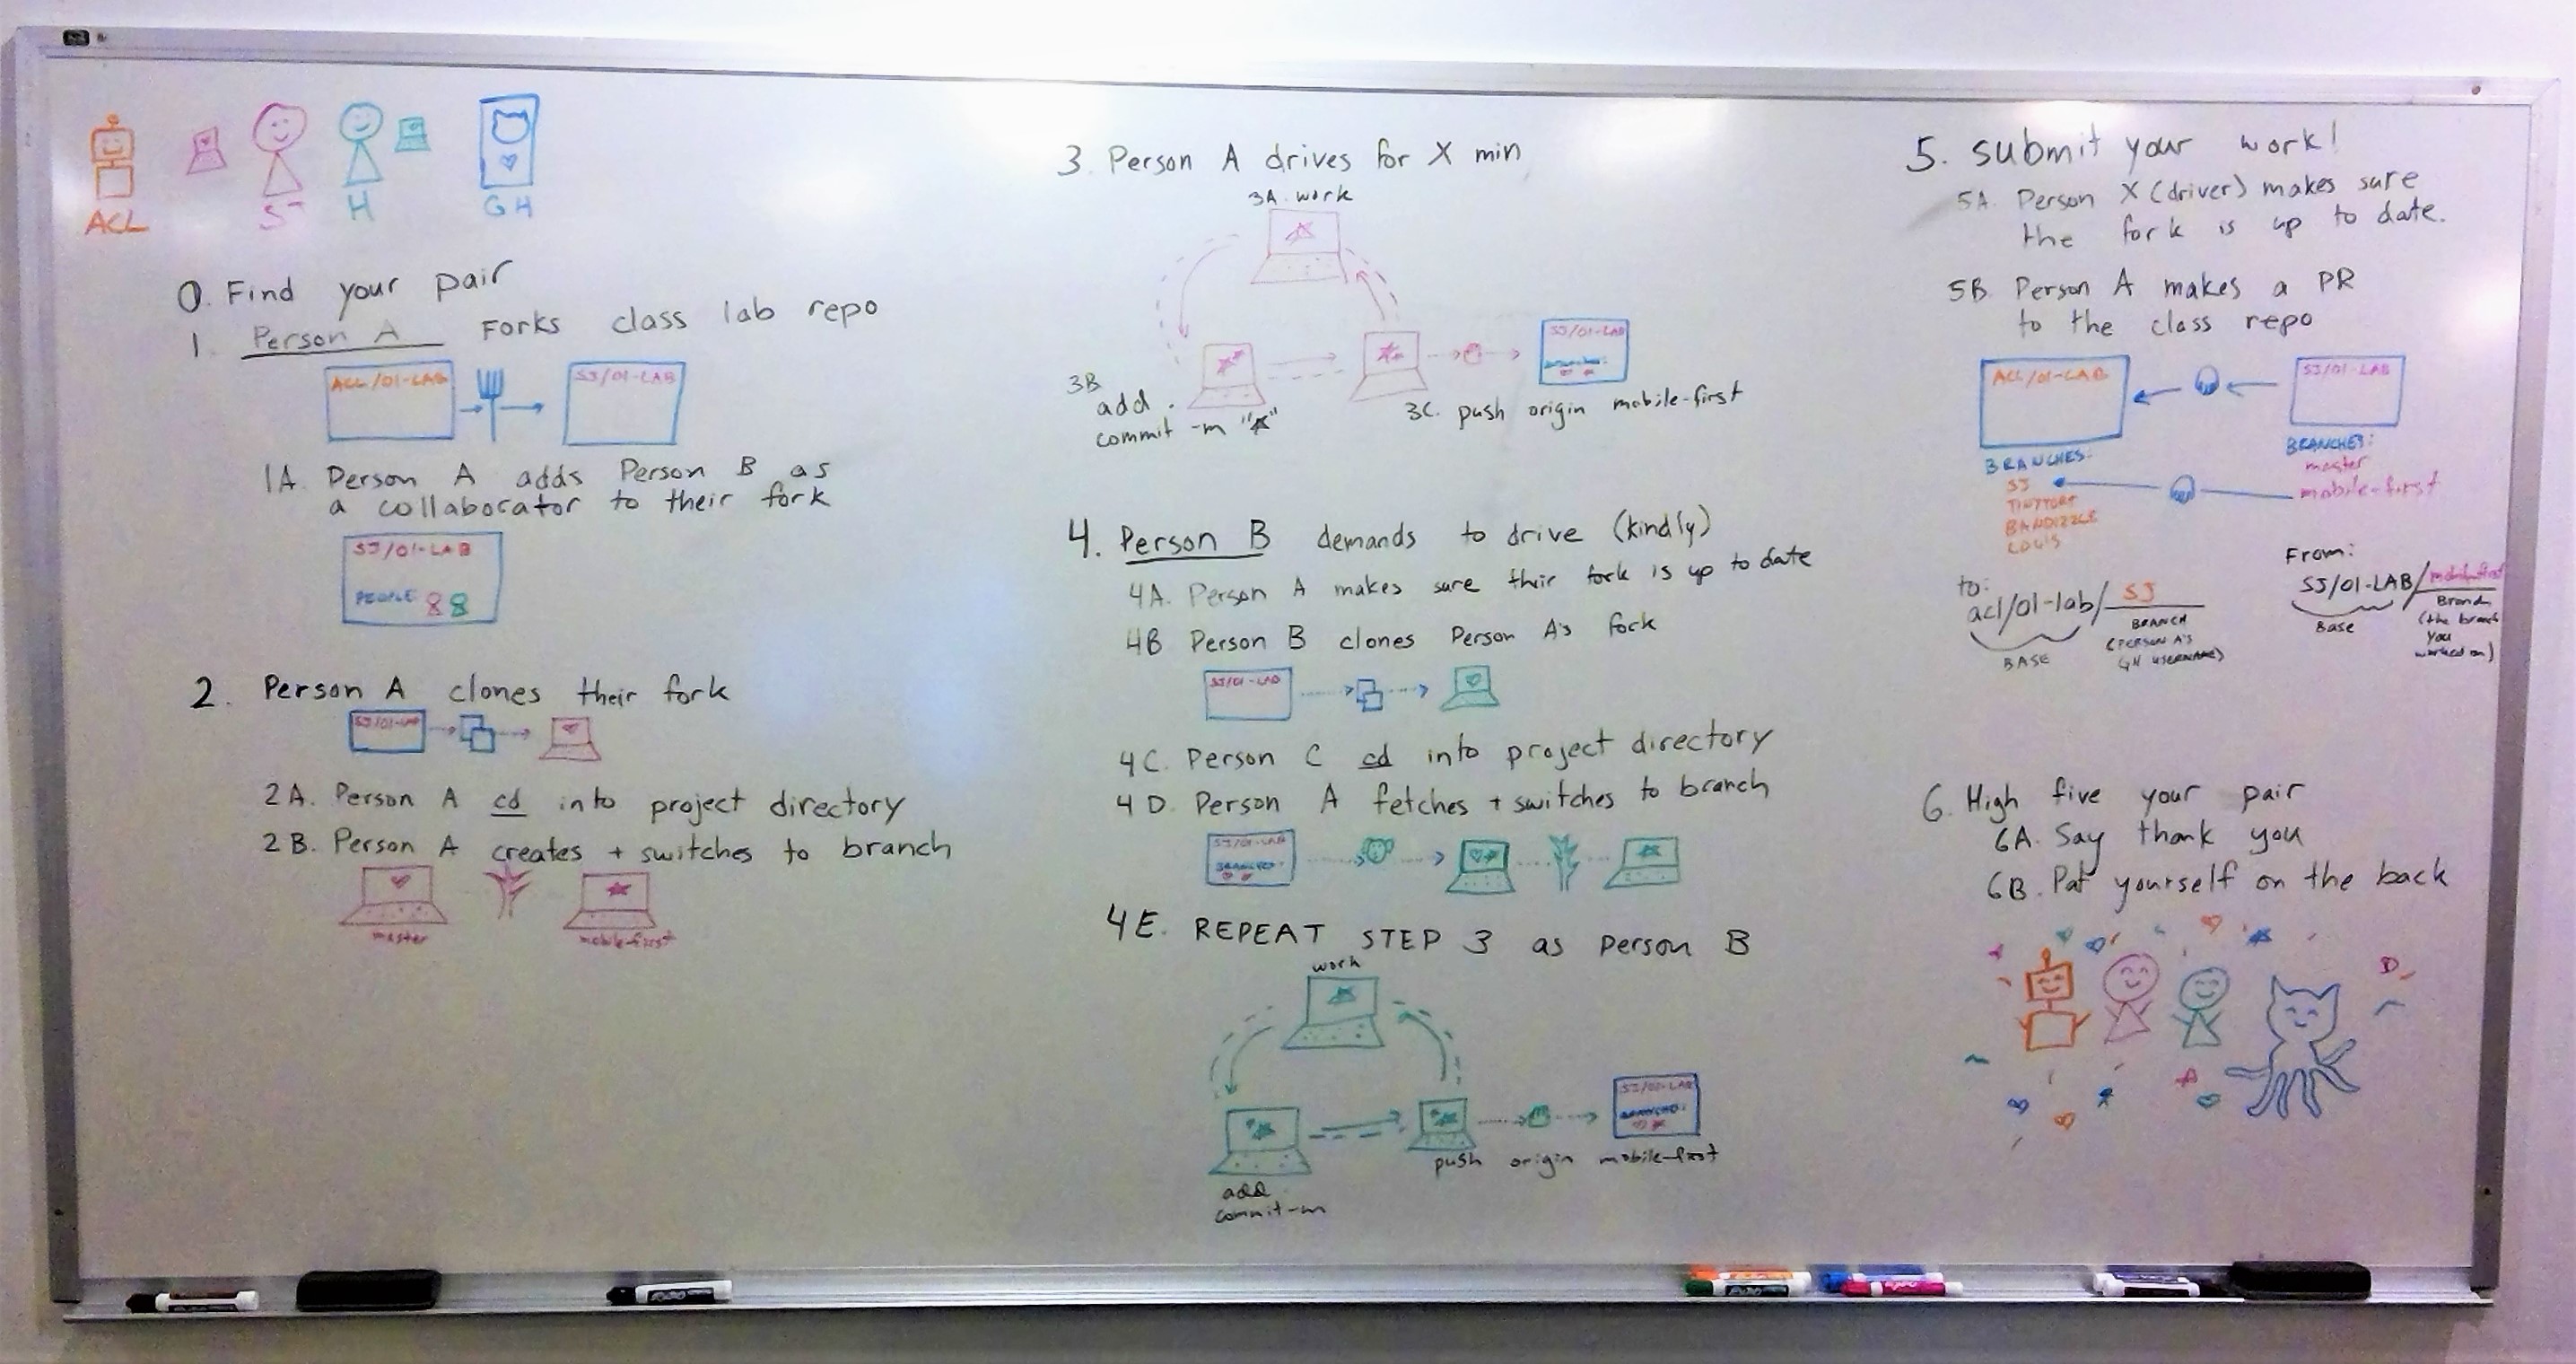 ACL
SJ
H
GH
0. Find your pair
1. Person A Forks class lab repo
ACL/01-LAB
SJ/01-LAB
1A. Person A adds Person B as
a collaborator to their fork
SJ/01-LAB
PEOPLE
2. Person A clones their fork
SJ/01-LAB
2A. Person A cd into project directory
2B. Person A creates + switches to branch
master
mobile-first
3. Person A drives for X min
3A. work
SJ/01-LAB
BRANCHES:
3B
add .
commit -m "★"
3C. push origin mobile-first
4. Person B demands to drive (kindly)
4A. Person A makes sure their fork is up to date
4B Person B clones Person A's fork
SJ/01-LAB
4C. Person C cd into project directory
4D. Person A fetches + switches to branch
SJ/01-LAB
BRANCHES:
4E. REPEAT STEP 3 as Person B
work
SJ/01-LAB
BRANCHES:
push origin mobile-first
add
commit -m
5. submit your work!
5A. Person X (driver) makes sure
the fork is up to date.
5B. Person A makes a PR
to the class repo
ACL/01-LAB
SJ/01-LAB
BRANCHES:
SJ
BRANCHES:
master
mobile-first
LOUIS
From:
SJ/01-LAB/mobile-first
Base
Branch
(the branch
you
worked on)
to:
acl/01-lab/ SJ
BASE
BRANCH
(PERSON A'S
GH USERNAME)
6. High five your pair
6A. Say thank you
6B. Pat yourself on the back